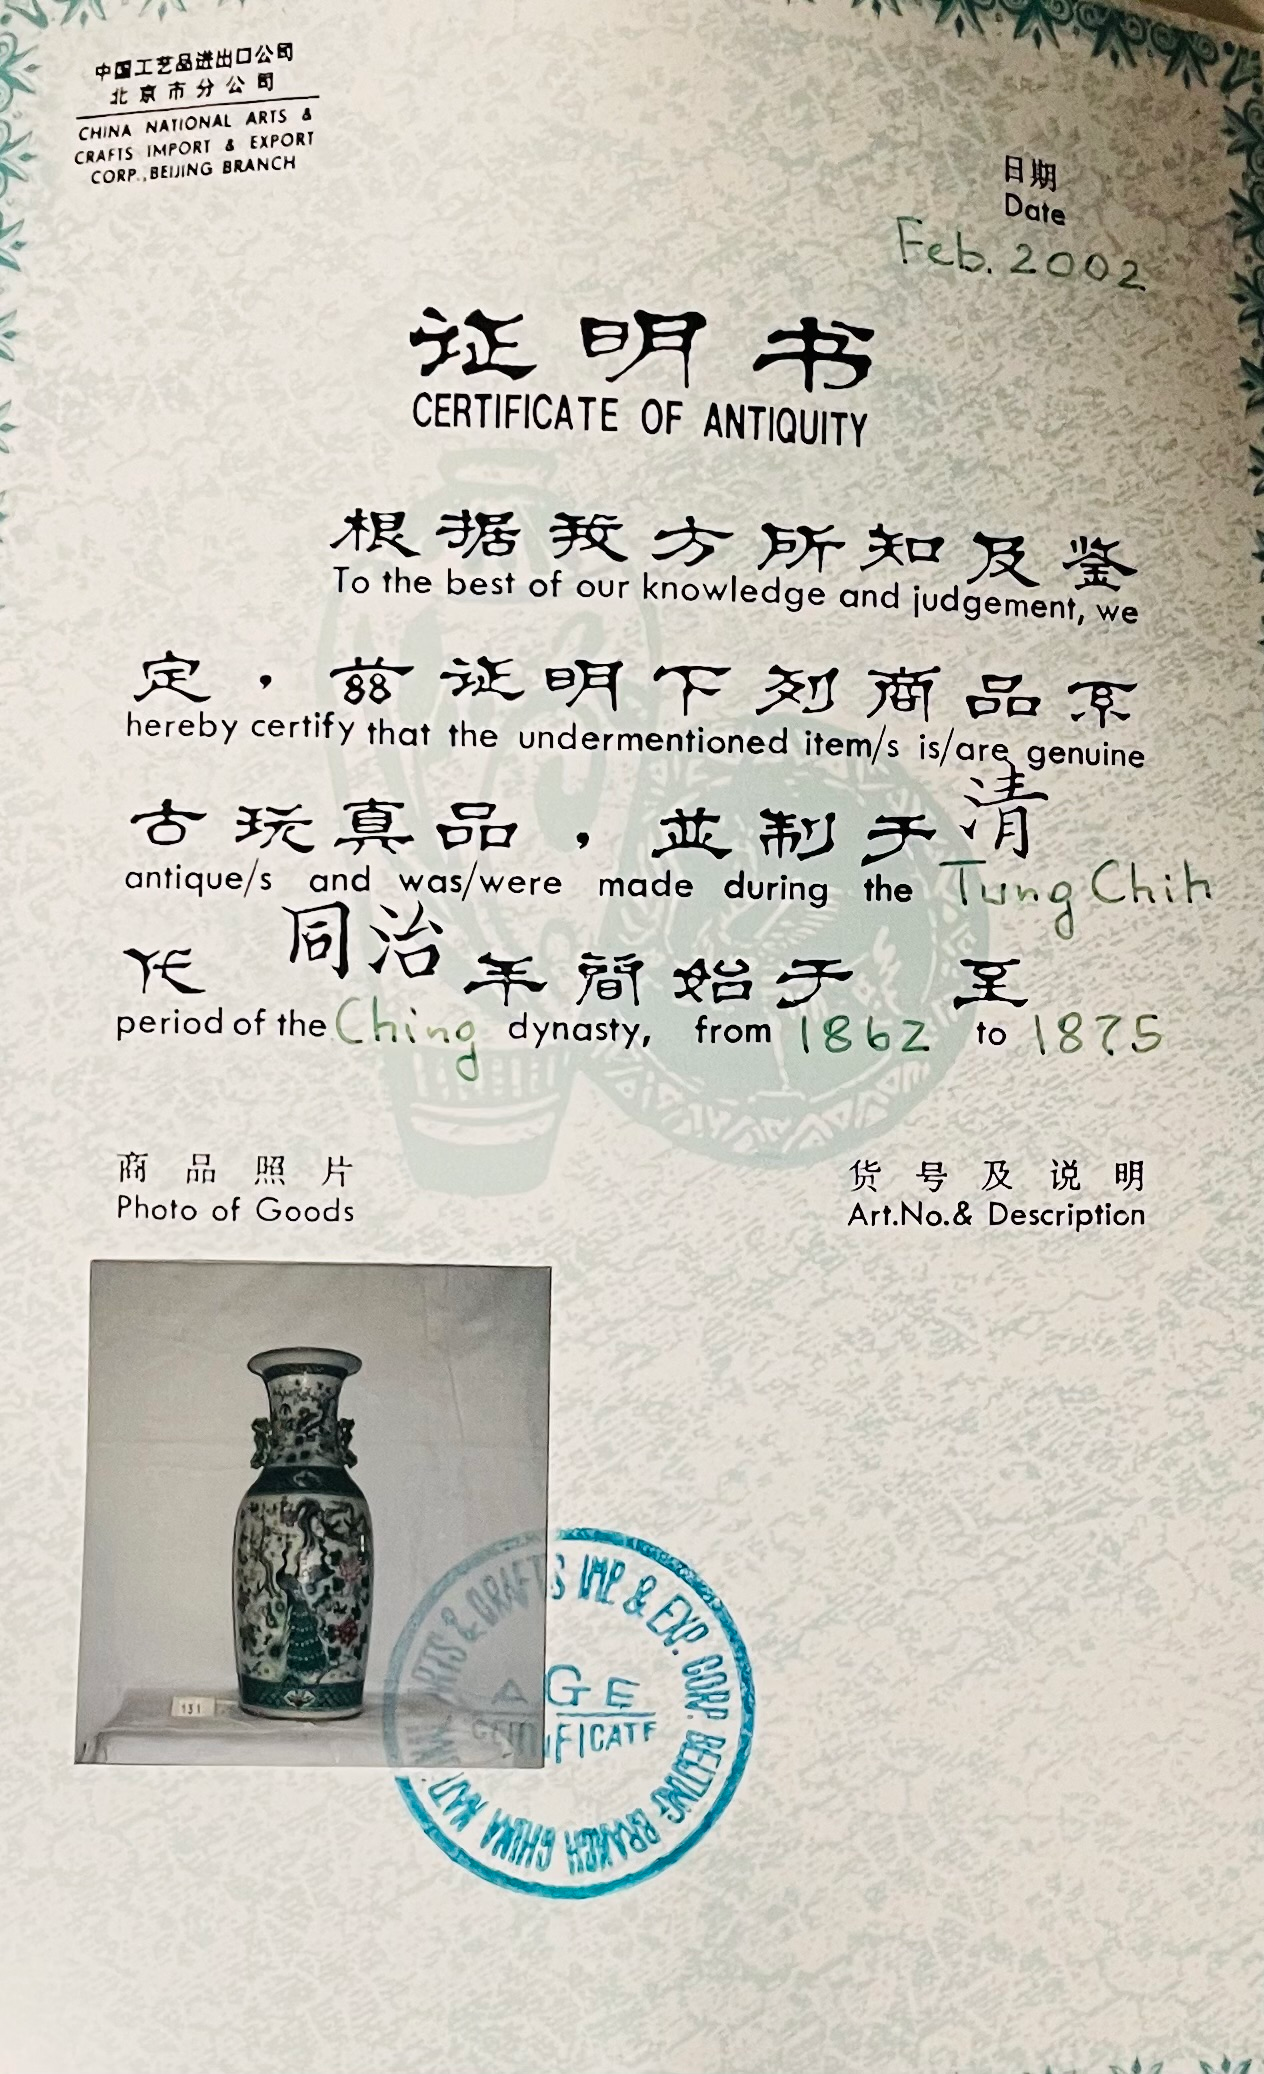 中国工艺品进出口公司
北京市分公司
CHINA NATIONAL ARTS &
CRAFTS IMPORT & EXPORT
CORP., BEIJING BRANCH
日期
Date
Feb. 2002
证明书
CERTIFICATE OF ANTIQUITY
根据我方所知及鉴
To the best of our knowledge and judgement, we
定，兹证明下列商品系
hereby certify that the undermentioned item/s is/are genuine
古玩真品，並制于清
antique/s and was/were made during the Tung Chih
代 同治年間始于 至
period of the Ching dynasty, from 1862 to 1875
商品照片
Photo of Goods
货号及说明
Art.No.& Description
131
ARTS & CRAFTS IMP & EXP. CORP. BEIJING BRANCH CHINA NATIONAL
AGE
CERTIFICATE